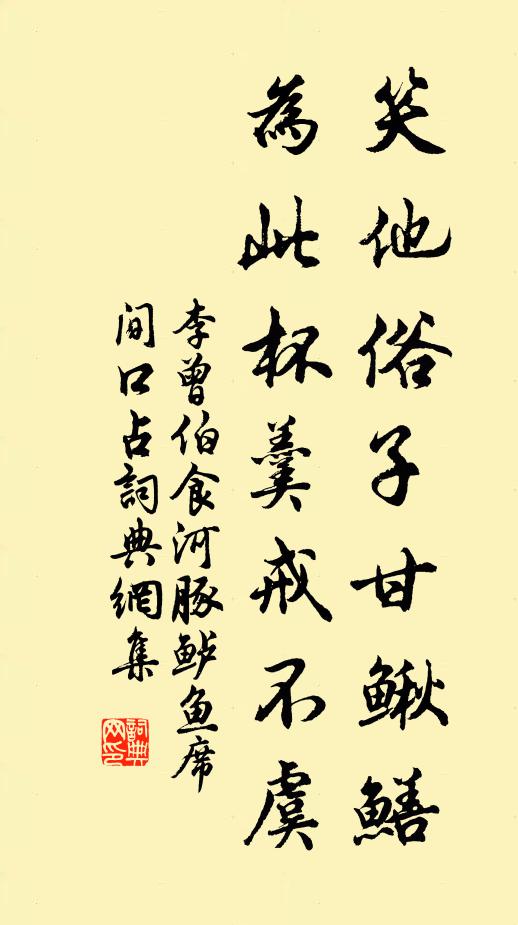 笑他俗子甘鳅鱔
為此杯羹戒不虞
李曾伯食河豚鲈鱼席
間口占詞典網集
詞典网印